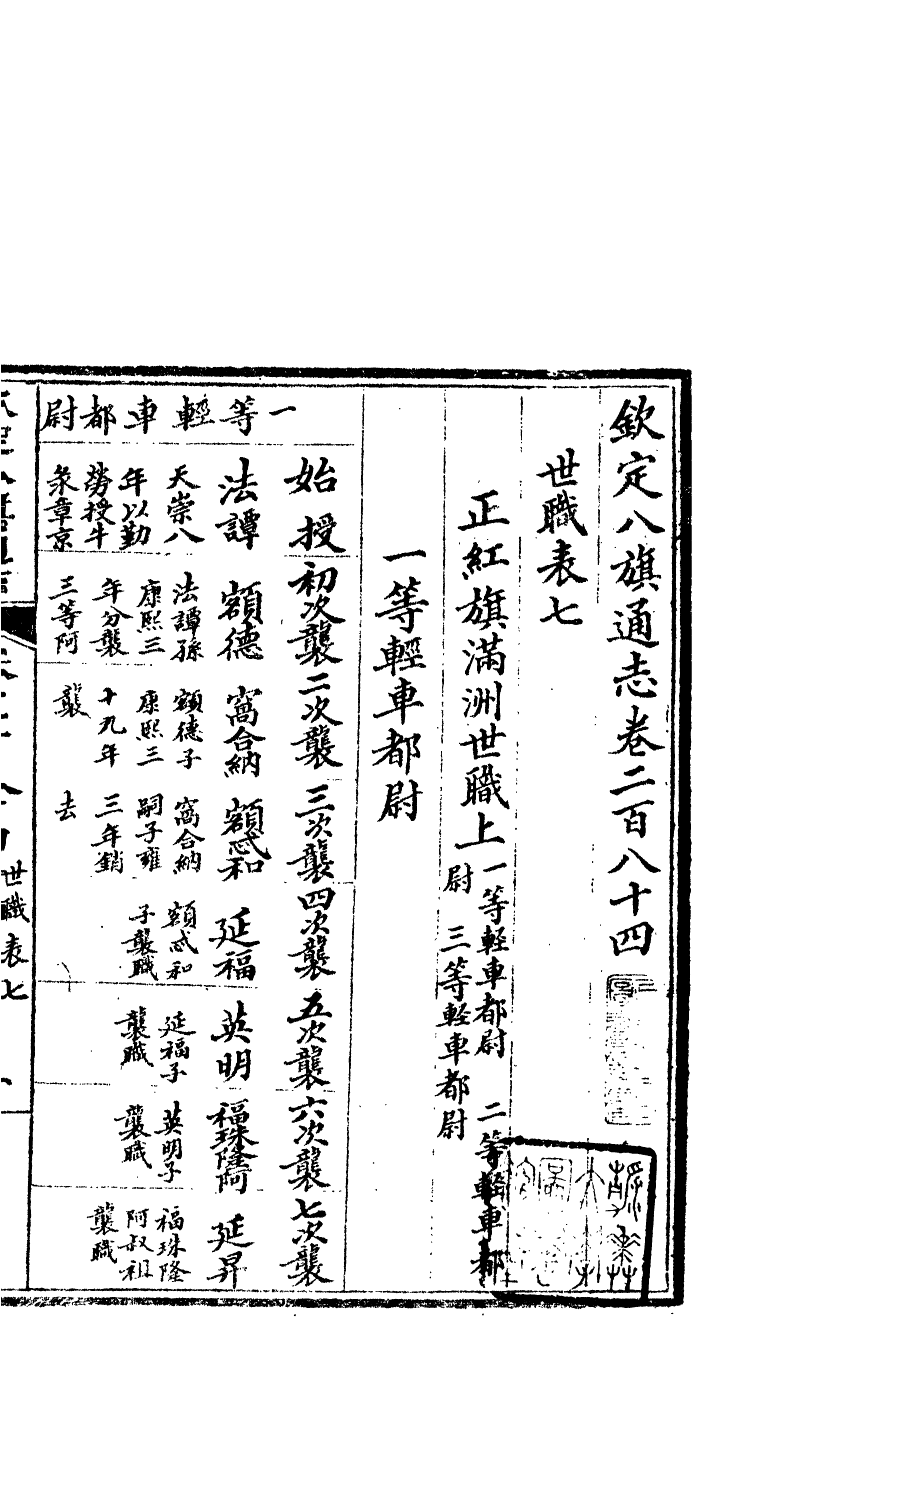 欽定八旗通志卷二百八十四
世職表七
正紅旗滿洲世職上 一等輕車都尉 二等輕車都尉 三等輕車都尉
一等輕車都尉
一等輕車都尉
始授 初次襲 二次襲 三次襲 四次襲 五次襲 六次襲 七次襲
法譚 額德 窩合納 額忒和 延福 英明 福珠隆阿 延昇
天崇八 法譚孫 額德子 窩合納 額忒和 延福子 英明子 福珠隆
年以勤 康熙三 康熙三 嗣子雍 子襲職 襲職 襲職 阿叔祖
勞授牛 年分襲 十九年 三年銷 襲職
彔章京 三等阿 襲 去
世職表七